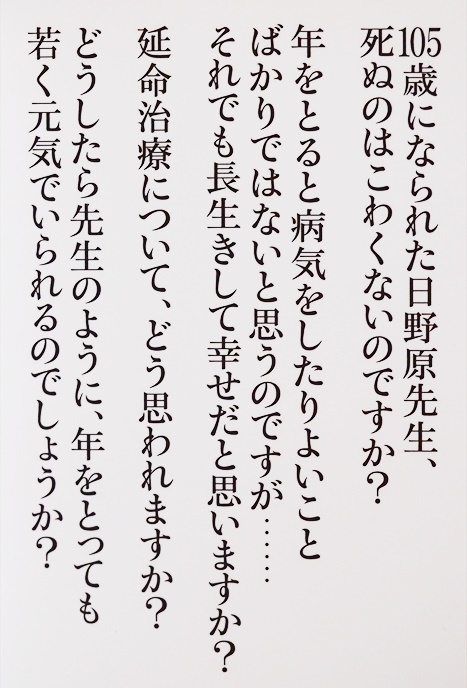 105歳になられた日野原先生、
死ぬのはこわくないのですか？
年をとると病気をしたりよいこと
ばかりではないと思うのですが……
それでも長生きして幸せだと思いますか？
延命治療について、どう思われますか？
どうしたら先生のように、年をとっても
若く元気でいられるのでしょうか？